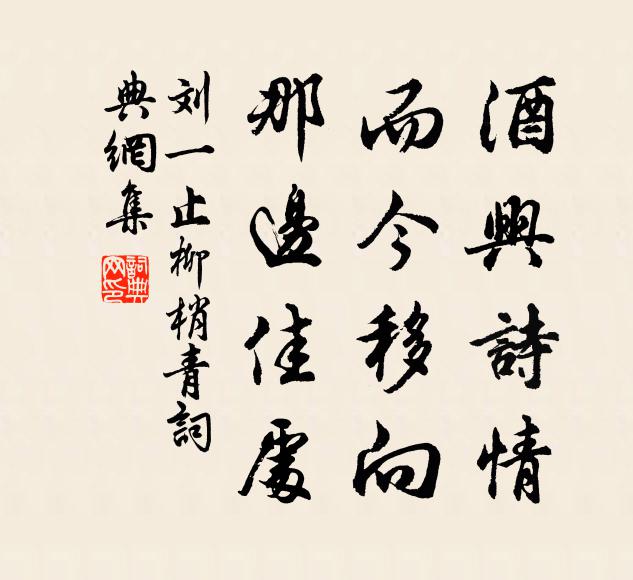 酒興詩情
而今移向
那邊佳處
刘一止柳梢青詞
典網集
詞典網印